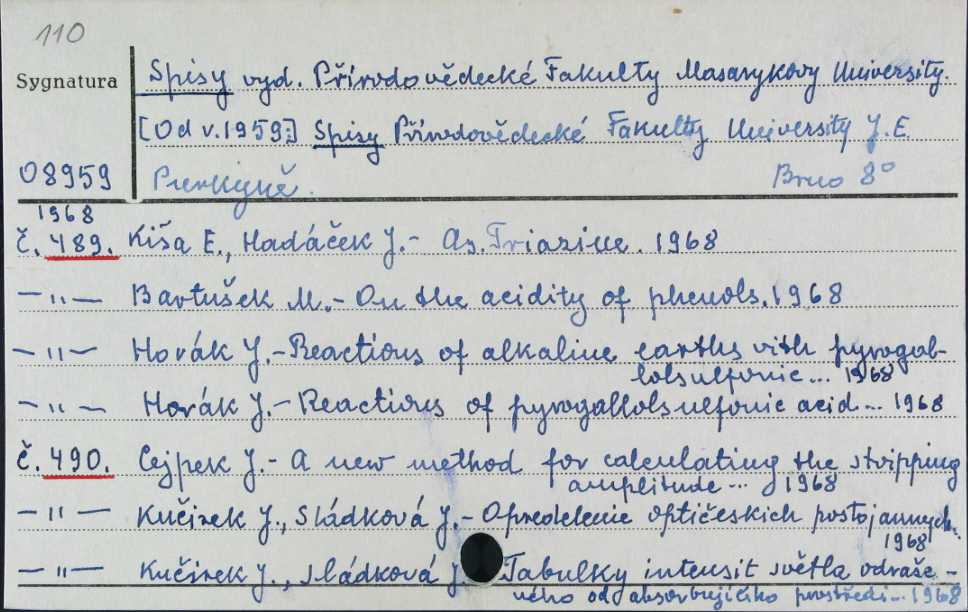 110
Sygnatura
Spisy vyd. Přírodovědecké Fakulty Masarykovy University.
[Od v. 1959:] Spisy Přírodovědecké Fakulty University J. E.
08959 Purkyně. Brno 8°
1968
č. 489. Kiša E., Hadáček J. - As. Triazine. 1968
- " - Bartušek M. - On the acidity of phenols. 1968
- " - Horák J. - Reactions of alkaline earths with pyrogal-
lolsulfonic... 1968
- " - Horák J. - Reactions of pyrogallolsulfonic acid... 1968
č. 490. Cejpek J. - A new method for calculating the stripping
amplitude... 1968
- " - Kučírek J., Sládková J. - Opredelenie optičeskich postojannych.
1968
- " - Kučírek J., Sládková J. Tabulky intensit světla odraže-
ného od absorbujícího prostředí... 1968